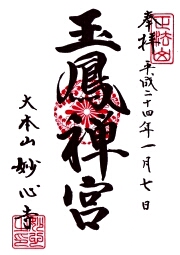 奉拝 平成二十四年一月七日
玉鳳禅宮
大本山 妙心寺